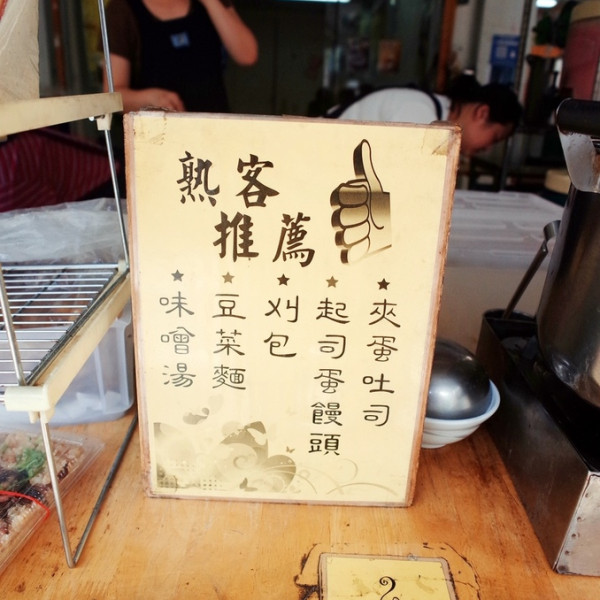 熟客
推薦
★夾蛋吐司
★起司蛋饅頭
★刈包
★豆菜麵
★味噌湯